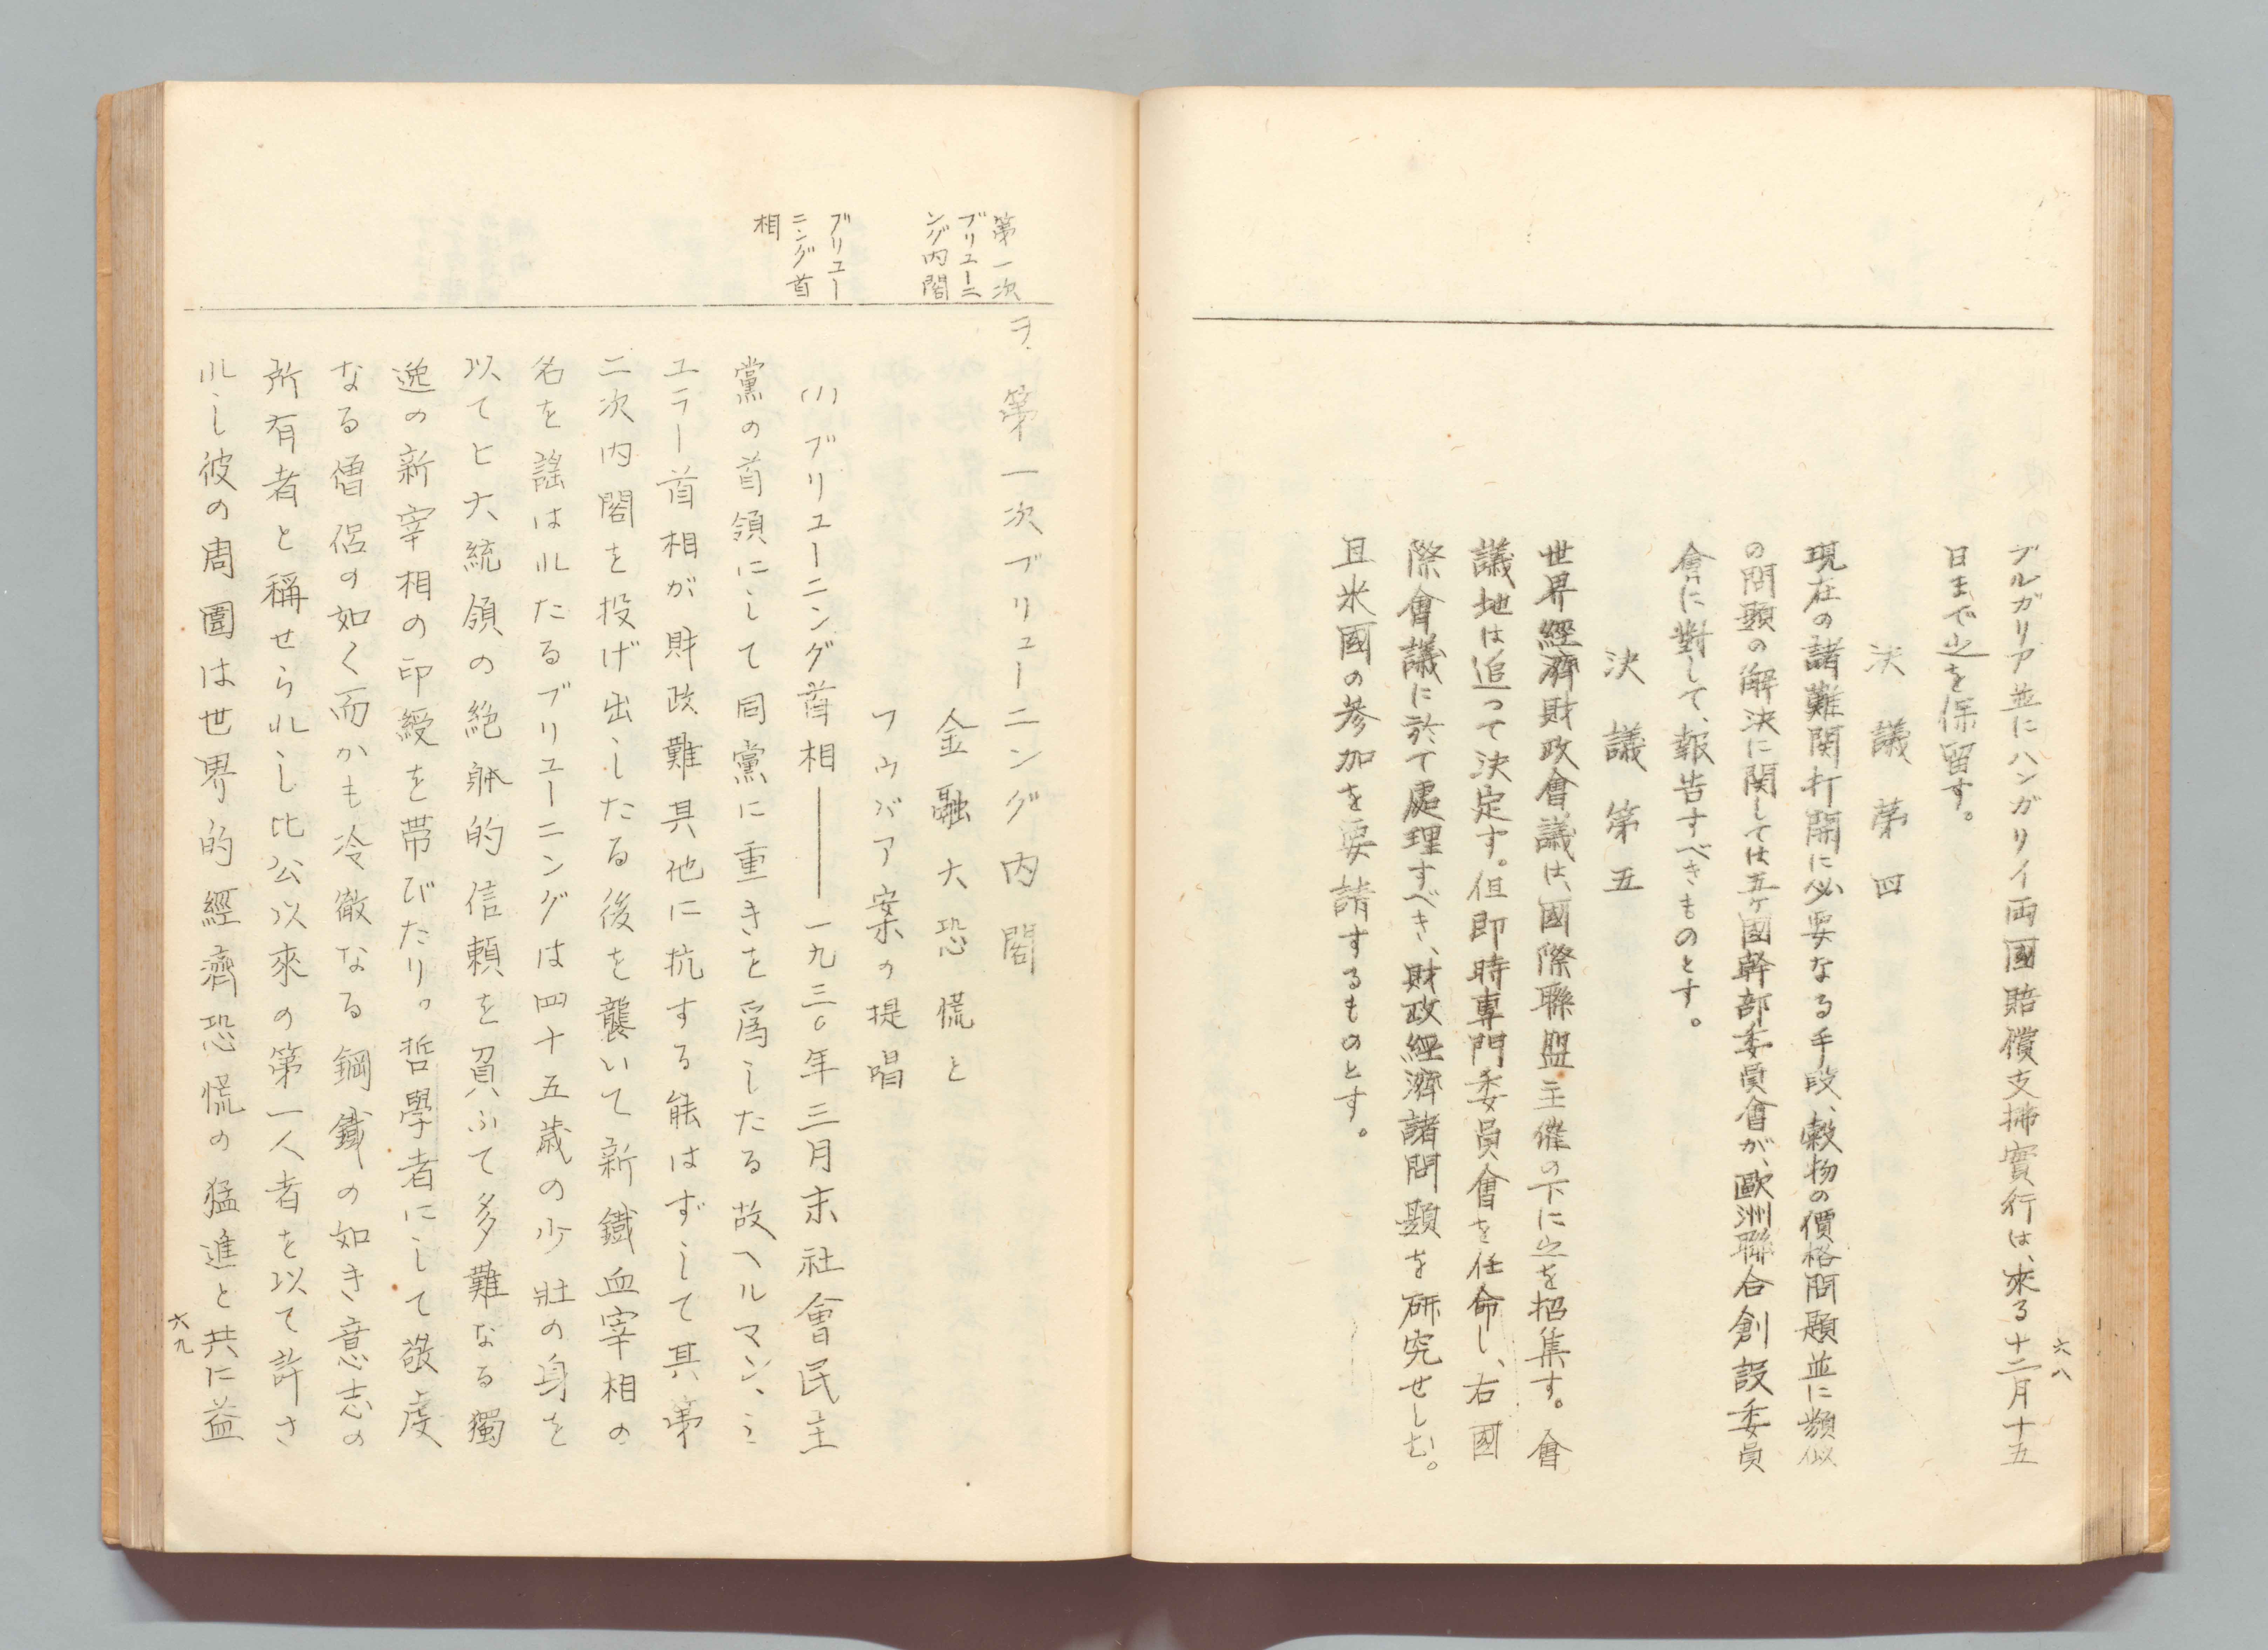 六八
ブルガリア並にハンガリイ両國賠償支拂實行は、來る十二月十五
日まで之を保留す。
決議第四
現在の諸難関打開に必要なる手段、穀物の價格問題並に類似
の問題の解決に関しては五ヶ國幹部委員會が、歐洲聯合創設委員
會に對して、報告すべきものとす。
決議第五
世界經濟財政會議は、國際聯盟主催の下に之を招集す。會
議地は追って決定す。但即時專門委員會を任命し、右國
際會議に於て處理すべき、財政經濟諸問題を研究せしむ。
且米國の参加を要請するものとす。
第一次
ブリューニ
ング内閣
ブリュー
ニング首
相
ヲ、第一次ブリューニング内閣
金融大恐慌と
フウバア案の提唱
(1)ブリューニング首相――一九三〇年三月末社會民主
黨の首領にして同黨に重きを爲したる故ヘルマン、ミ
ユラー首相が財政難其他に抗する能はずして其第
二次内閣を投げ出したる後を襲いて新鐵血宰相の
名を謠はれたるブリューニングは四十五歳の少壯の身を
以てヒ大統領の絶躰的信頼を負ふて多難なる獨
逸の新宰相の印綬を帯びたり。哲學者にして敬虔
なる僧侶の如く而かも冷徹なる鋼鐵の如き意志の
所有者と稱せられし比公以來の第一人者を以て許さ
れし彼の周圍は世界的經濟恐慌の猛進と共に益
六九